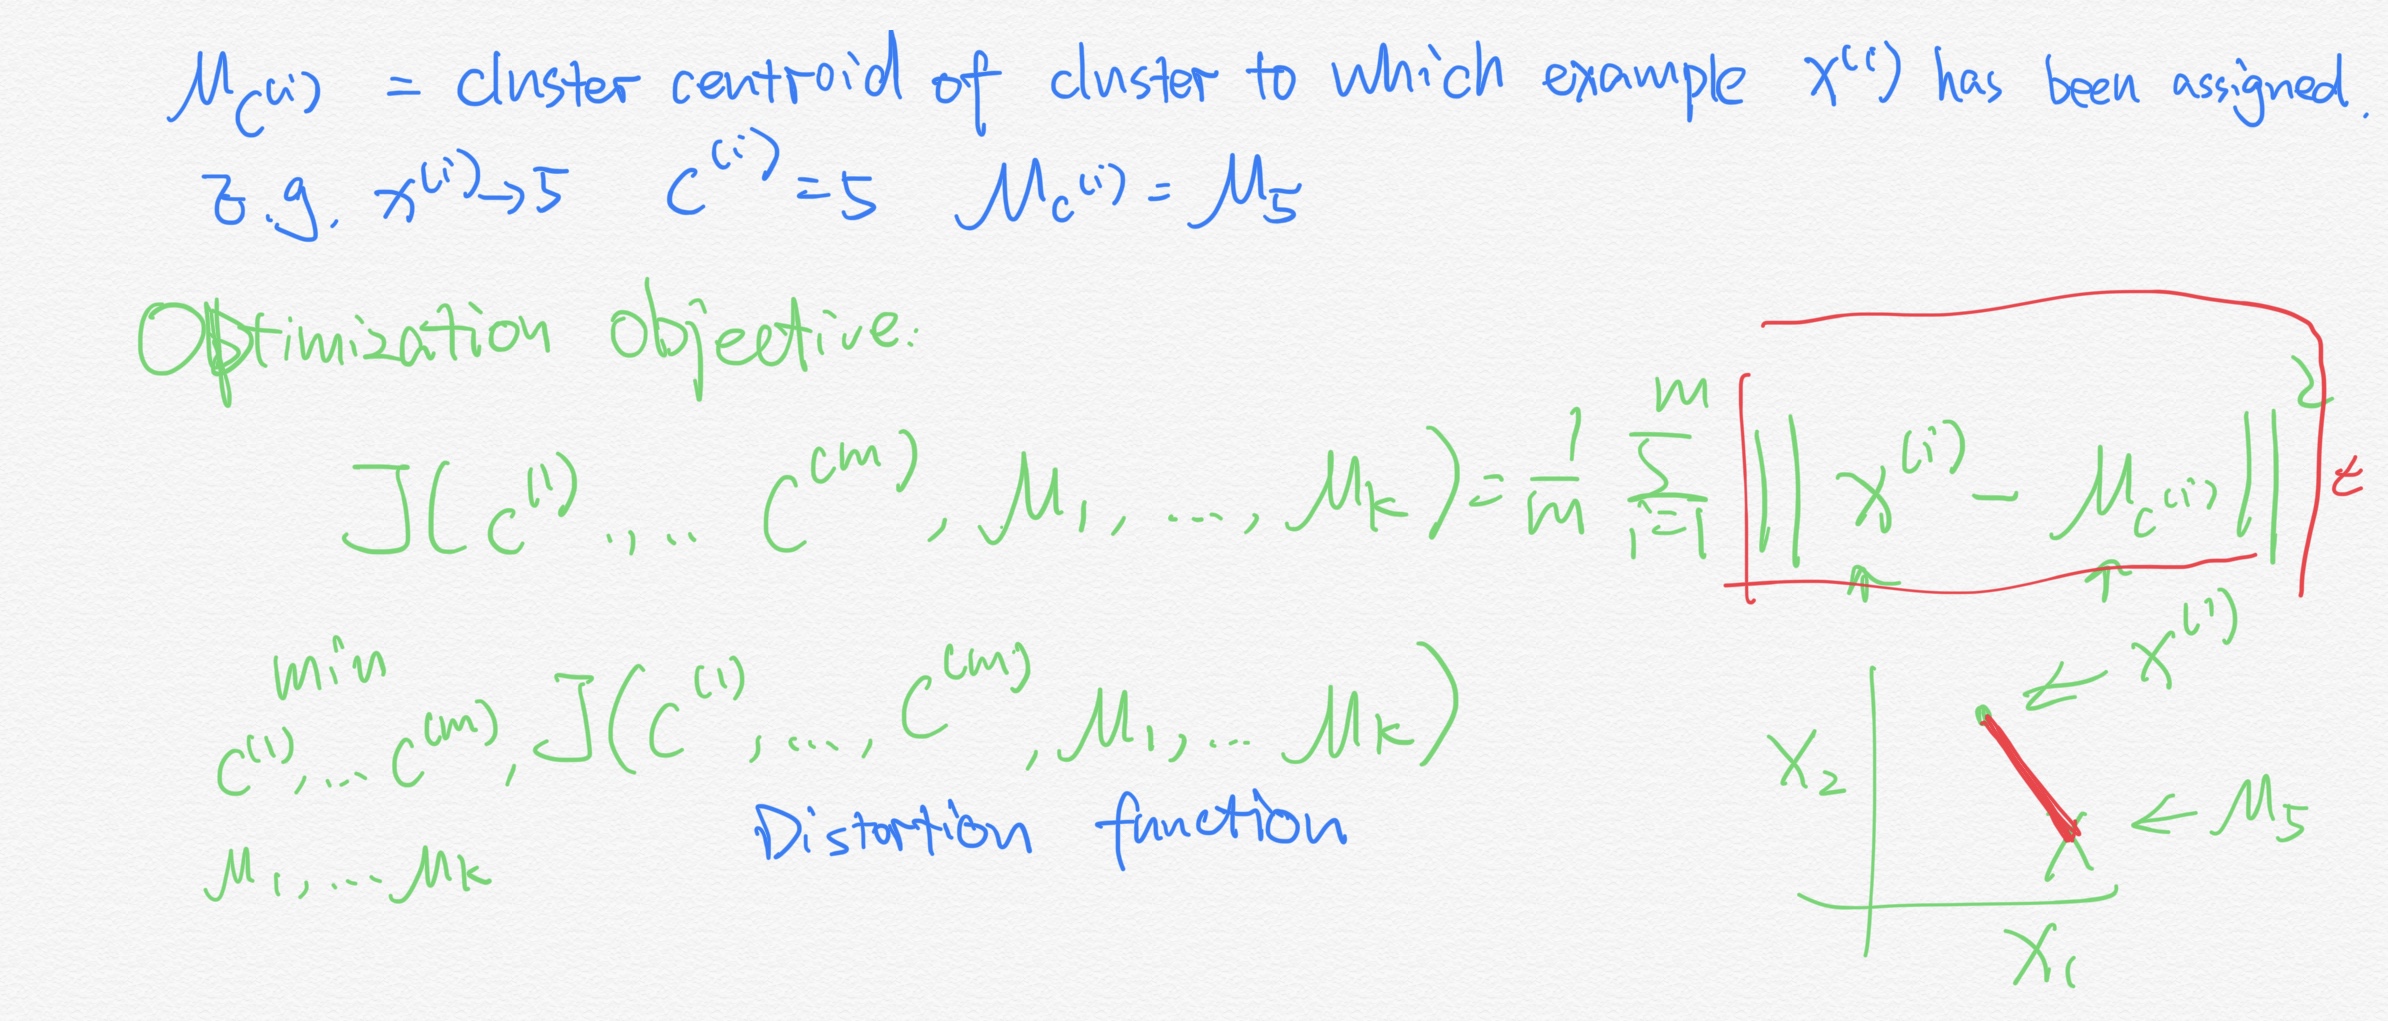 μ_c(i) = cluster centroid of cluster to which example x^(i) has been assigned.
E.g. x^(i)→5 c^(i)=5 μ_c(i) = μ_5
Optimization objective:
J(c^(1),... c^(m), μ_1, ..., μ_k) = 1/m Σ_{i=1}^{m} ||x^(i) - μ_c(i)||^2
min
c^(1),... c^(m), J(c^(1), ..., c^(m), μ_1, ... μ_k)
μ_1, ... μ_k
Distortion function
x^(i)
x_2
μ_5
x_1